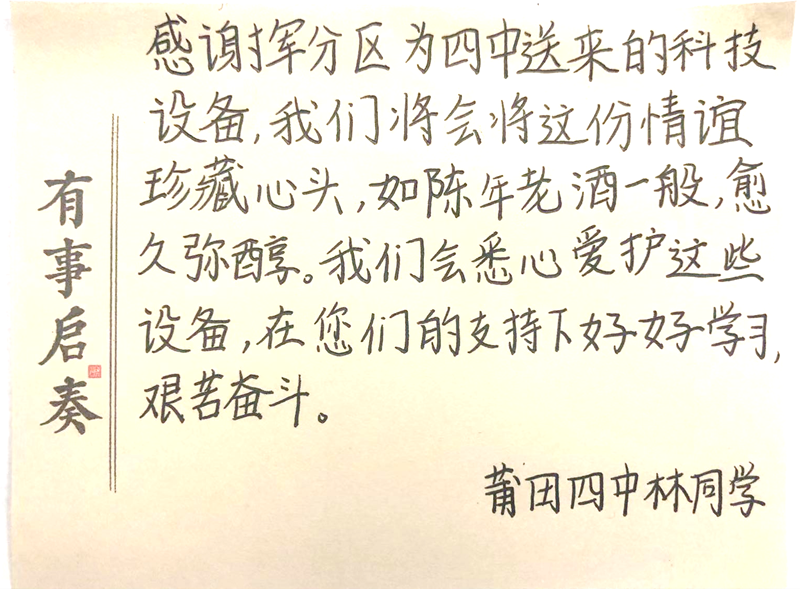 感谢挥分区为四中送来的科技
设备,我们将会将这份情谊
珍藏心头,如陈年老酒一般,愈
久弥醇。我们会悉心爱护这些
设备,在您们的支持下好好学习,
艰苦奋斗。
莆田四中林同学
有事启奏